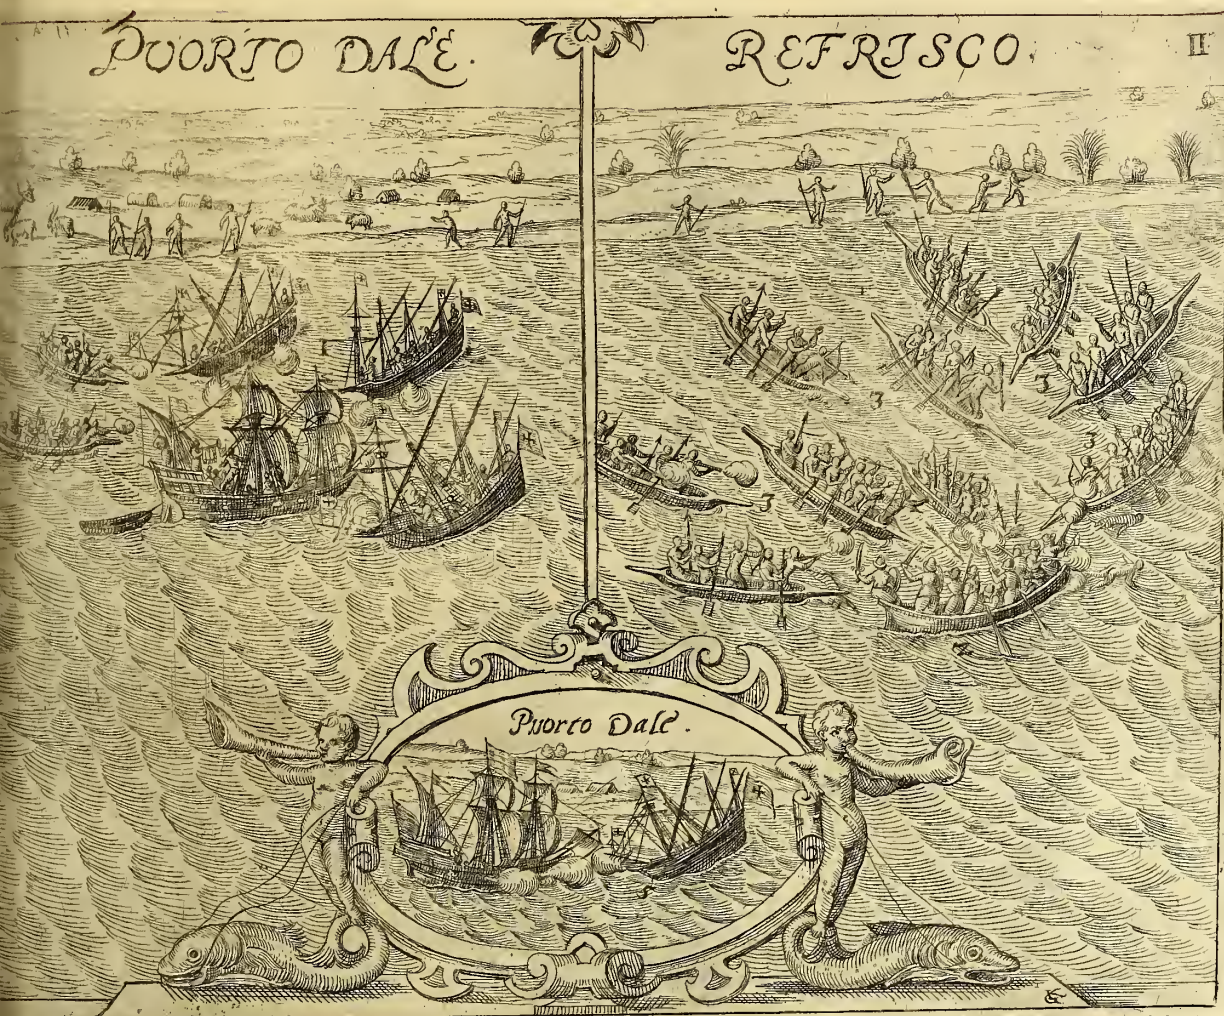 PUORTO DALÉ.
REFRISCO.
II
1
3
3
3
3
2
Puorto Dalé.
5